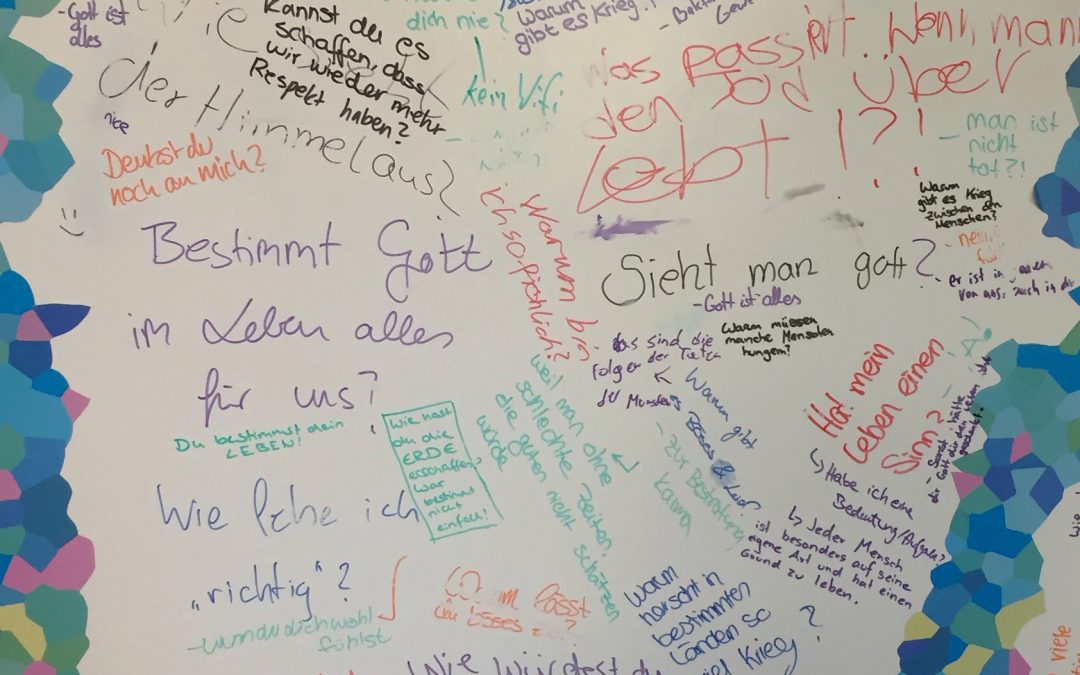 -Gott ist
alles
Kannst du es
schaffen, dass
wir wieder mehr
Respekt haben?
dich nie?
kein Vifi
warum
gibt es Krieg
Was passiert wenn man
den Tod über
lebt !?!
- man ist
nicht
tot?!
der Himmel aus?
nice
Denkst du
noch an mich?
Bestimmt Gott
im Leben alles
für uns?
Du bestimmst dein
LEBEN!
Warum bin
ich so
Sieht man gott?
-Gott ist alles
Warum
gibt es Krieg
zwischen den
Menschen?
er ist in
von uns. auch in dir
Warum müssen
manche Menschen
hungern?
das sind die
Folgen der Taten
der
Warum gibt
Böses &
- zur Bestrafung
Karma
weil man ohne
schlechte Zeiten,
die guten nicht schätzen
würde
Hat mein
Leben einen
Sinn?
Sonst hätte
dir Gott dir dein Leben nicht
geschenkt!
Habe ich eine
Bedeutung/Aufgabe?
Jeder Mensch
ist besonders auf seine
eigene Art und hat einen
Grund zu leben.
wie hast
du die
ERDE
erschaffen,
war
bestimmt
nicht
einfach!
Wie lebe ich
„richtig"?
fühlst
warum
herscht in
bestimmten
Länden so
viel Krieg
?
Wie würdest du
viele